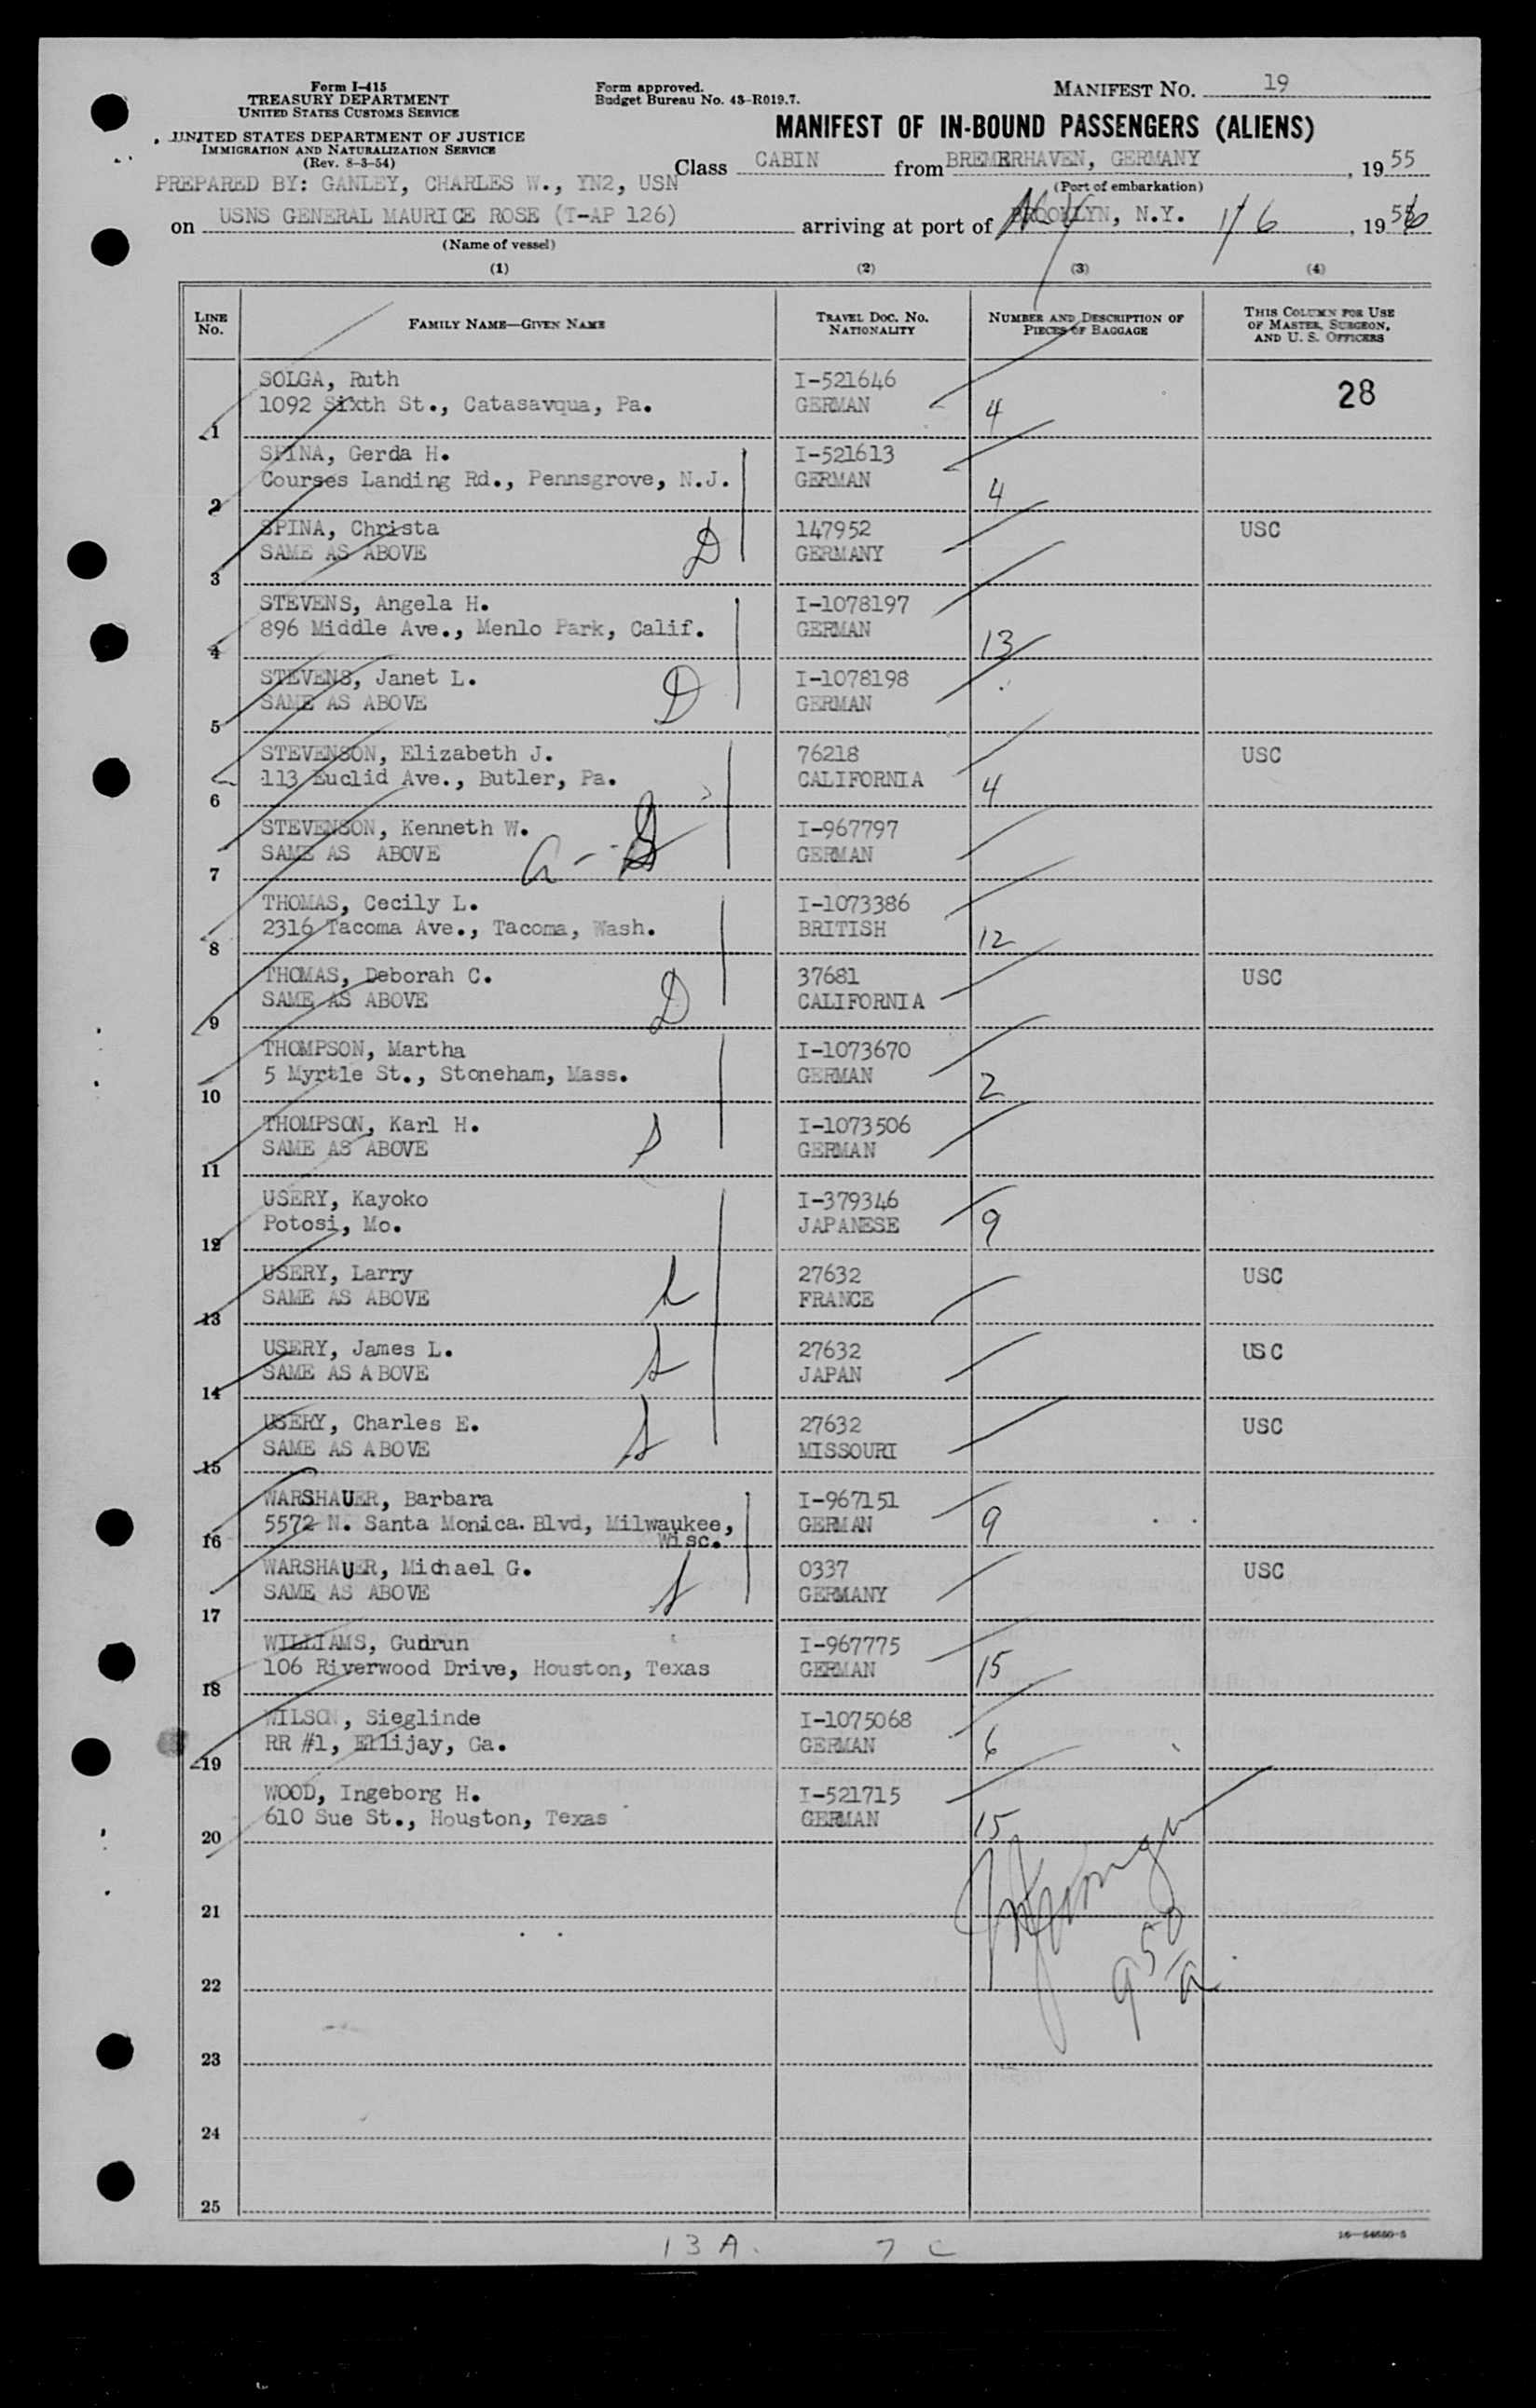 Form I-415
TREASURY DEPARTMENT
UNITED STATES CUSTOMS SERVICE
UNITED STATES DEPARTMENT OF JUSTICE
IMMIGRATION AND NATURALIZATION SERVICE
(Rev. 8-3-54)
Form approved.
Budget Bureau No. 43-R019.7.
MANIFEST NO. 19
MANIFEST OF IN-BOUND PASSENGERS (ALIENS)
Class CABIN from BREMERHAVEN, GERMANY, 1955
(Port of embarkation)
PREPARED BY: GANLEY, CHARLES W., YN2, USN
on USNS GENERAL MAURICE ROSE (T-AP 126) arriving at port of BROOKLYN, N.Y. NY 1/6, 1956
(Name of vessel)
(1) (2) (3) (4)
LINE NO. FAMILY NAME—GIVEN NAME TRAVEL DOC. NO. NATIONALITY NUMBER AND DESCRIPTION OF PIECES OF BAGGAGE THIS COLUMN FOR USE OF MASTER, SURGEON, AND U. S. OFFICERS
SOLGA, Ruth I-521646 28
1092 Sixth St., Catasavqua, Pa. GERMAN 4
1
SPINA, Gerda H. I-521613
Courses Landing Rd., Pennsgrove, N.J. GERMAN 4
2
SPINA, Christa 147952 USC
SAME AS ABOVE D GERMANY
3
STEVENS, Angela H. I-1078197
896 Middle Ave., Menlo Park, Calif. GERMAN 13
4
STEVENS, Janet L. I-1078198
SAME AS ABOVE D GERMAN
5
STEVENSON, Elizabeth J. 76218 USC
113 Euclid Ave., Butler, Pa. CALIFORNIA 4
6
STEVENSON, Kenneth W. I-967797
SAME AS ABOVE GERMAN
7
THOMAS, Cecily L. I-1073386
2316 Tacoma Ave., Tacoma, Wash. BRITISH 12
8
THOMAS, Deborah C. 37681 USC
SAME AS ABOVE D CALIFORNIA
9
THOMPSON, Martha I-1073670
5 Myrtle St., Stoneham, Mass. GERMAN 2
10
THOMPSON, Karl H. I-1073506
SAME AS ABOVE GERMAN
11
USERY, Kayoko I-379346
Potosi, Mo. JAPANESE 9
12
USERY, Larry 27632 USC
SAME AS ABOVE FRANCE
13
USERY, James L. 27632 USC
SAME AS ABOVE JAPAN
14
USERY, Charles E. 27632 USC
SAME AS ABOVE MISSOURI
15
WARSHAUER, Barbara I-967151
5572 N. Santa Monica. Blvd, Milwaukee, GERMAN 9
Wisc.
16
WARSHAUER, Michael G. 0337 USC
SAME AS ABOVE GERMANY
17
WILLIAMS, Gudrun I-967775
106 Riverwood Drive, Houston, Texas GERMAN 15
18
WILSON, Sieglinde I-1075068
RR #1, Ellijay, Ga. GERMAN 6
19
WOOD, Ingeborg H. I-521715
610 Sue St., Houston, Texas GERMAN 15
20
21
22
950
23
24
25
16—54650-5
13 A. 7 C